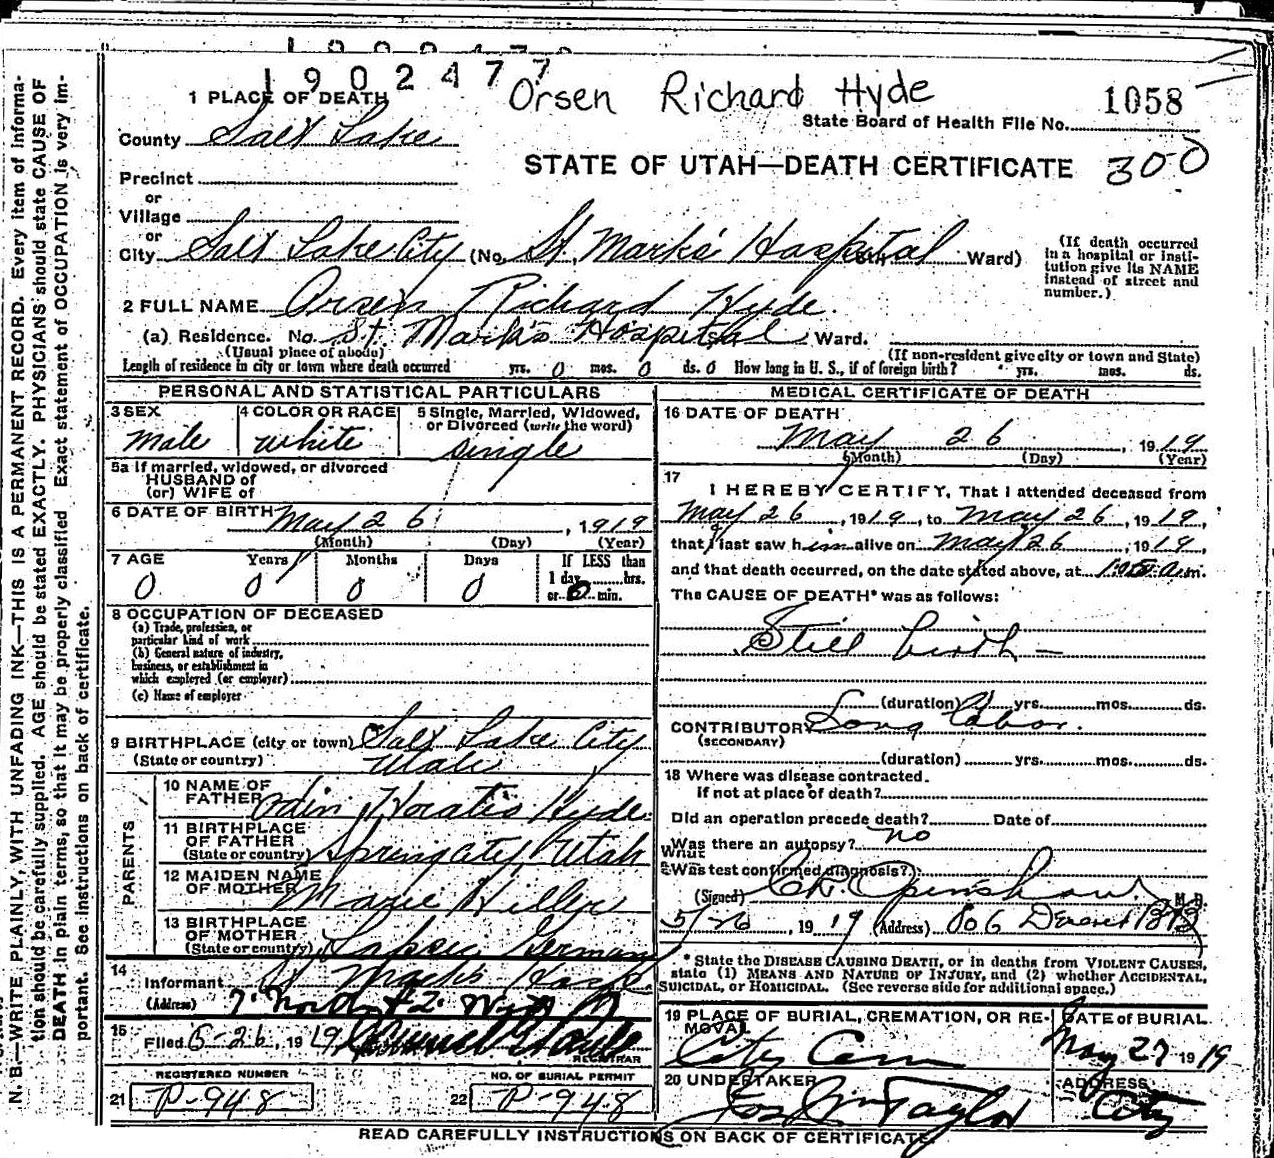 1902477
Orsen Richard Hyde
1058
State Board of Health File No.
STATE OF UTAH—DEATH CERTIFICATE 300
1 PLACE OF DEATH
County Salt Lake
Precinct
or
Village
or
City Salt Lake City (No. St. Mark's Hospital Ward)
(If death occurred in a hospital or institution give its NAME instead of street and number.)
2 FULL NAME Orsen Richard Hyde.
(a) Residence. No. St. Mark's Hospital Ward.
(Usual place of abode) (If non-resident give city or town and State)
Length of residence in city or town where death occurred yrs. 0 mos. 0 ds. 0 How long in U. S., if of foreign birth? yrs. mos. ds.
PERSONAL AND STATISTICAL PARTICULARS
3 SEX male
4 COLOR OR RACE white
5 Single, Married, Widowed, or Divorced (write the word) single
5a If married, widowed, or divorced
HUSBAND of
(or) WIFE of
6 DATE OF BIRTH May 26, 1919
(Month) (Day) (Year)
7 AGE Years Months Days If LESS than
0 0 0 0 1 day hrs.
or 0 min.
8 OCCUPATION OF DECEASED
(a) Trade, profession, or
particular kind of work
(b) General nature of industry,
business, or establishment in
which employed (or employer)
(c) Name of employer
9 BIRTHPLACE (city or town) Salt Lake City
(State or country) Utah
PARENTS
10 NAME OF FATHER Odin Horatio Hyde.
11 BIRTHPLACE OF FATHER (State or country) Spring City Utah
12 MAIDEN NAME OF MOTHER Marie Hiller
13 BIRTHPLACE OF MOTHER (State or country) Germany
14 Informant St Marks Hosp.
(Address)
15 Filed 5-26, 1919
REGISTRAR
REGISTERED NUMBER NO. OF BURIAL PERMIT
21 P-948 22 P-948
MEDICAL CERTIFICATE OF DEATH
16 DATE OF DEATH
May 26, 1919
(Month) (Day) (Year)
17 I HEREBY CERTIFY, That I attended deceased from
May 26, 1919, to May 26, 1919,
that I last saw him alive on May 26, 1919,
and that death occurred, on the date stated above, at a.m.
The CAUSE OF DEATH* was as follows:
Still birth —
(duration) yrs. mos. ds.
CONTRIBUTORY Long labor.
(SECONDARY)
(duration) yrs. mos. ds.
18 Where was disease contracted.
if not at place of death?
Did an operation precede death? Date of
Was there an autopsy? no
What
Was test confirmed diagnosis?
(Signed) Openshaw. M. D.
5/26, 1919 (Address) 806 Deseret
* State the DISEASE CAUSING DEATH, or in deaths from VIOLENT CAUSES,
state (1) MEANS AND NATURE OF INJURY, and (2) whether ACCIDENTAL,
SUICIDAL, or HOMICIDAL. (See reverse side for additional space.)
19 PLACE OF BURIAL, CREMATION, OR REMOVAL DATE of BURIAL
City Cem May 27 1919
20 UNDERTAKER ADDRESS
Jos Wm Taylor City
READ CAREFULLY INSTRUCTIONS ON BACK OF CERTIFICATE.
N. B.—WRITE PLAINLY, WITH UNFADING INK—THIS IS A PERMANENT RECORD. Every item of information should be carefully supplied. AGE should be stated EXACTLY. PHYSICIANS should state CAUSE OF DEATH in plain terms, so that it may be properly classified. Exact statement of OCCUPATION is very important. See instructions on back of certificate.